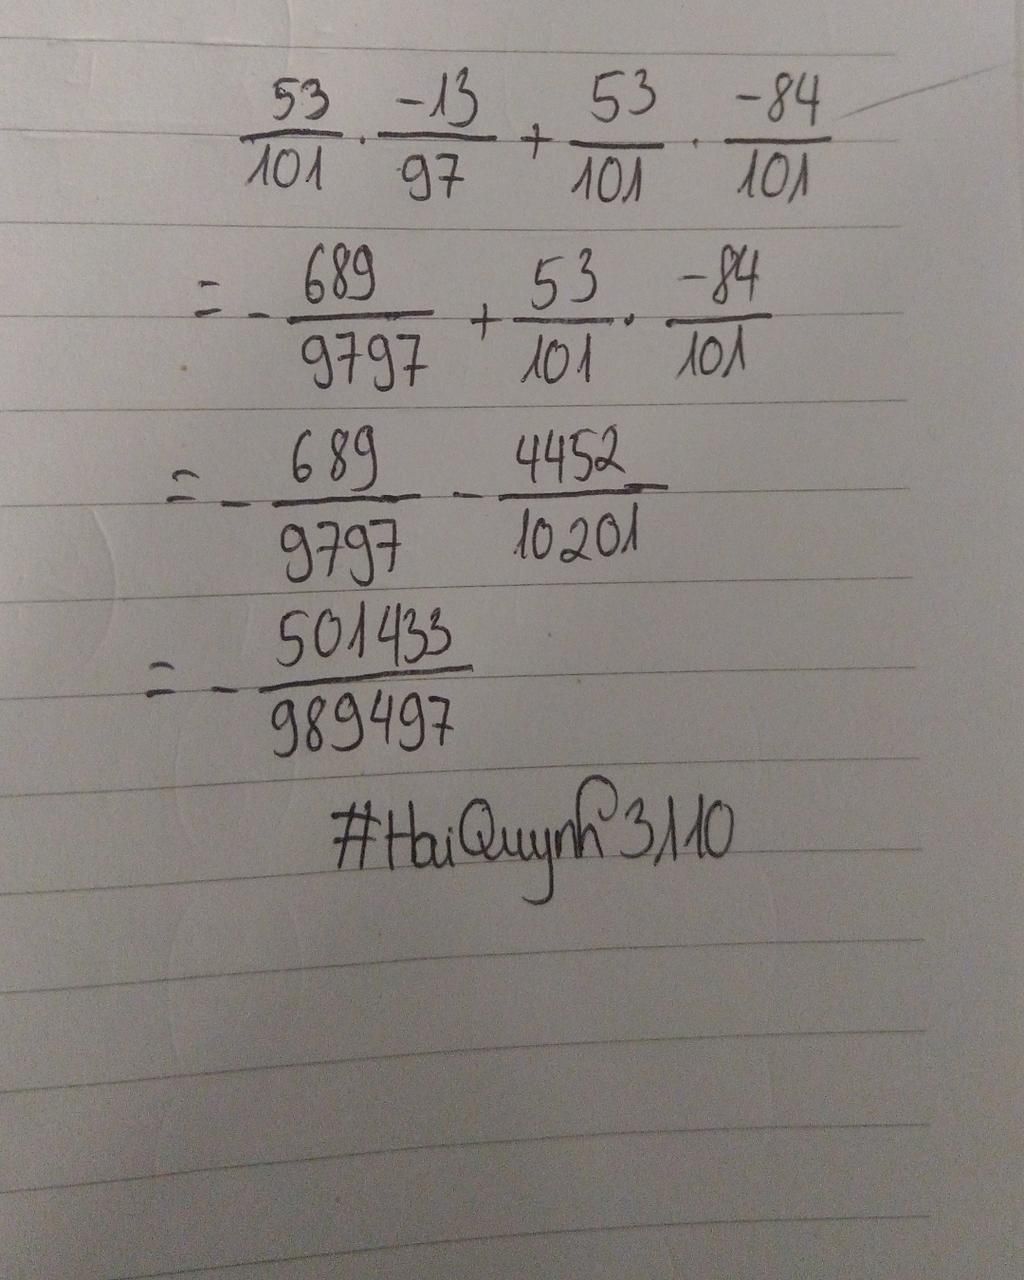 53/101 . -13/97 + 53/101 . -84/101
= - 689/9797 + 53/101 . -84/101
= - 689/9797 - 4452/10201
= - 501433/989497
#HaiQuynh3110